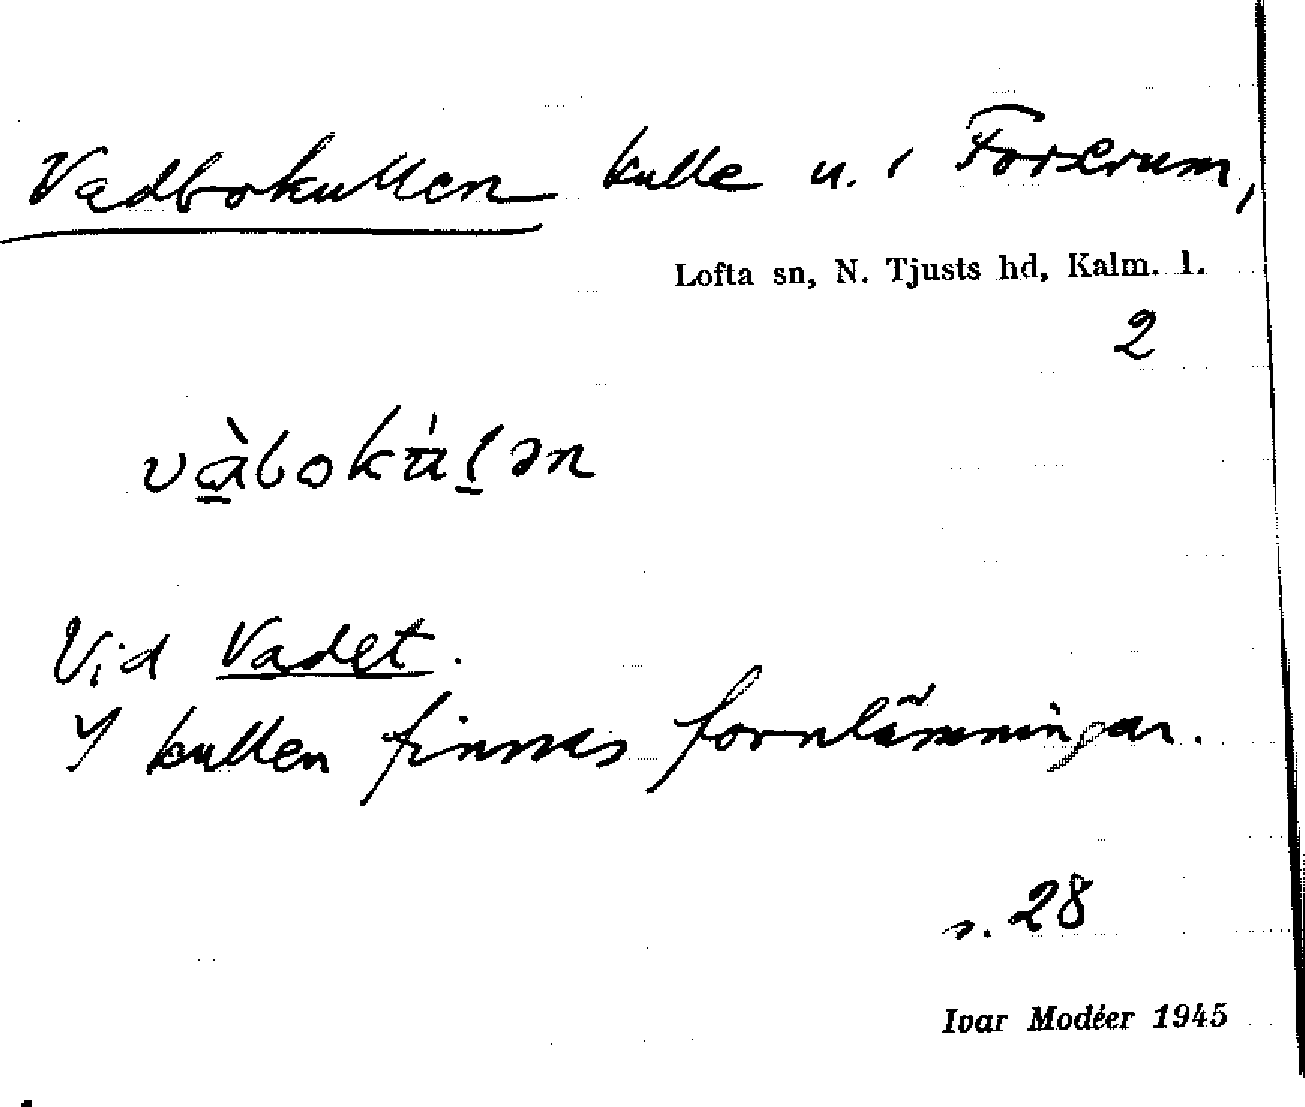 Vadbokullen kulle u. i Forserum,
Lofta sn, N. Tjusts hd, Kalm. l.
2
Vid Vadet.
I kullen finnas fornlämningar.
s. 28
Ivar Modéer 1945